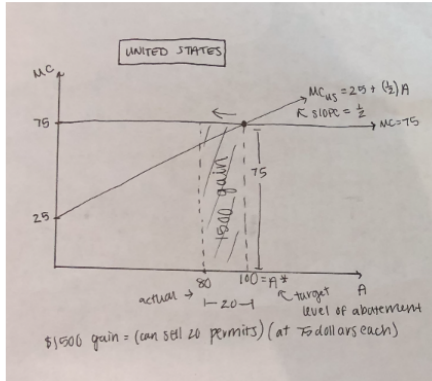 UNITED STATES
MC
MCus = 25 + (1/2) A
slope = 1/2
75
MC=75
75
1500 gain
25
80
100 = A*
A
actual →
20
target
level of abatement
$1500 gain = (can sell 20 permits) (at 75 dollars each)